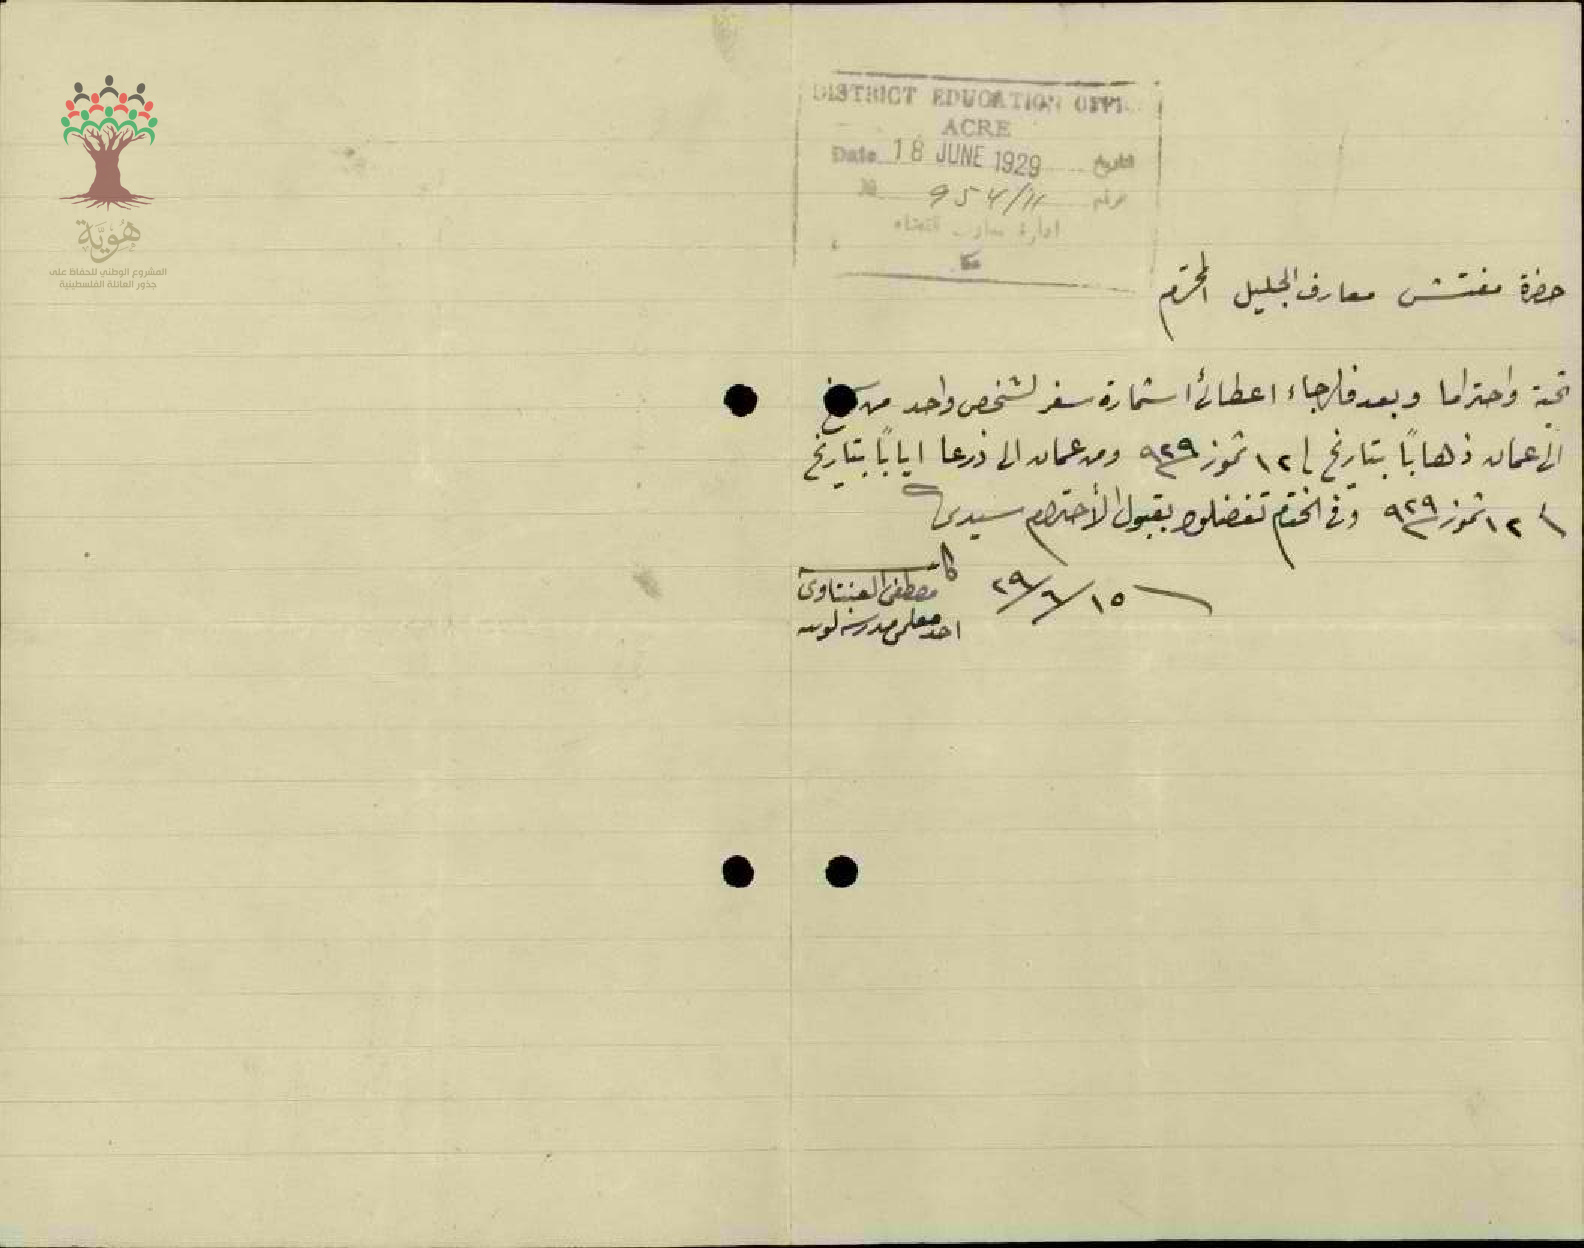 DISTRICT EDUCATION OFFI
ACRE
Date 18 JUNE 1929 التاريخ
№ 954/11
ادارة معارف
عكا
هُوِيَّة
المشروع الوطني للحفاظ على
جذور العائلة الفلسطينية
حضرة مفتش معارف الجليل المحترم
تحية واحتراما وبعد فارجاء اعطائي استمارة سفر لشخص واحد من
الى عمان ذهابًا بتاريخ ١٢ تموز ٩٢٩ ومن عمان الى ذرعا ايابًا بتاريخ
١٢ تموز ٩٢٩ وفي الختام تفضلوا بقبول الأحترام سيدي
١٥/٦/٢٩
مصطفى العنبتاوي
احد معلمي مدرسة